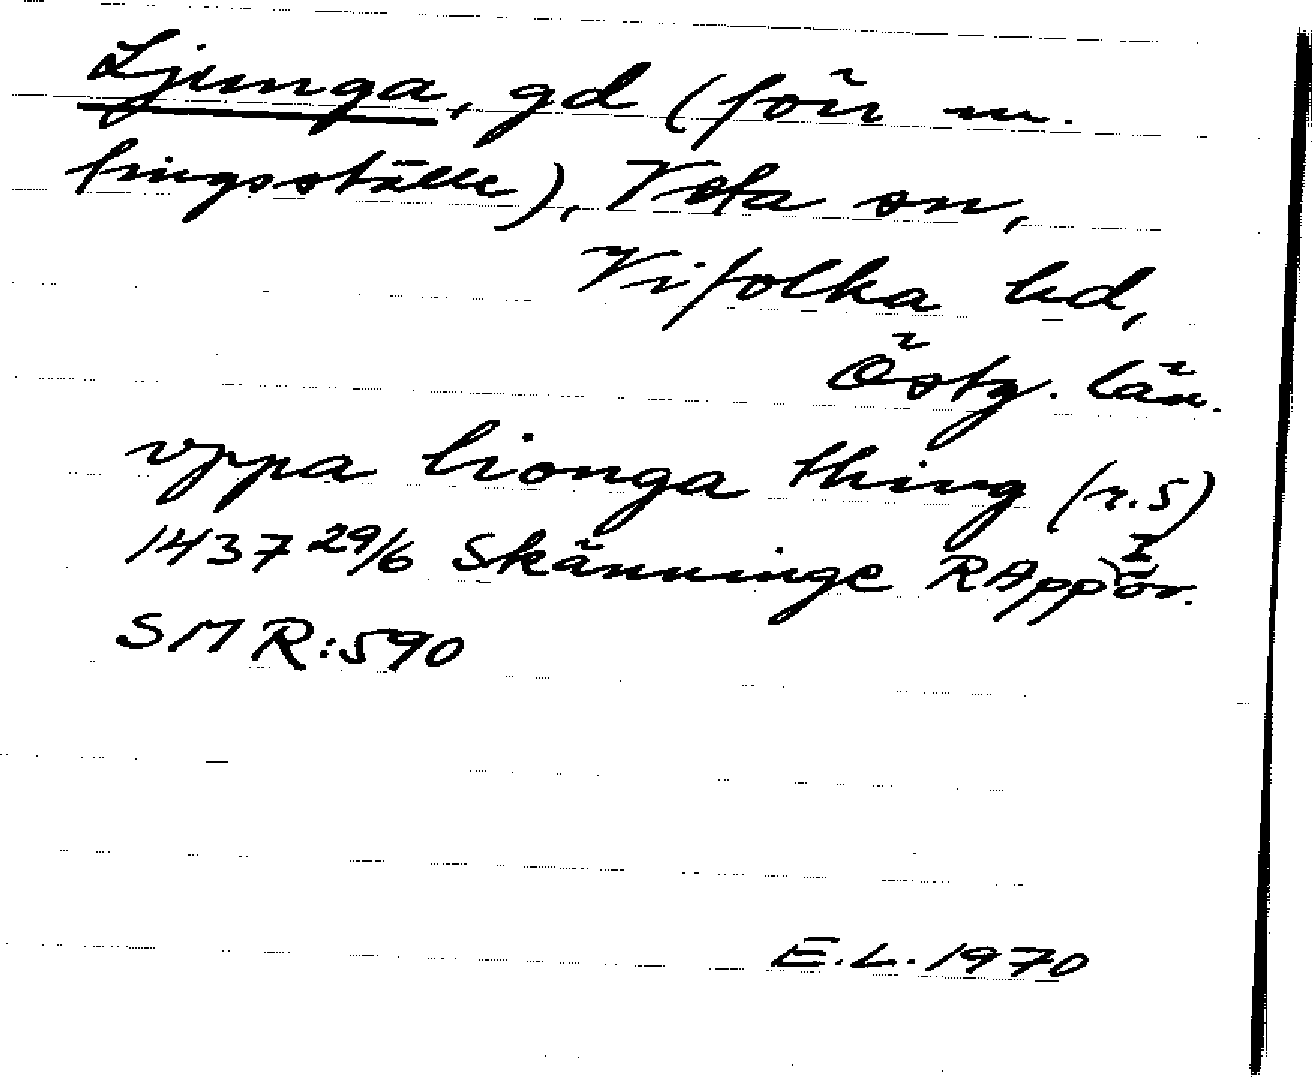 Ljunga, gd (förr m.
tingsställe), Veta sn,
Vifolka hd,
Östg. län.
vppa lionga thing (r.5)
1437 29/6 Skänninge RAppör.
SMR:590
E.L. 1970